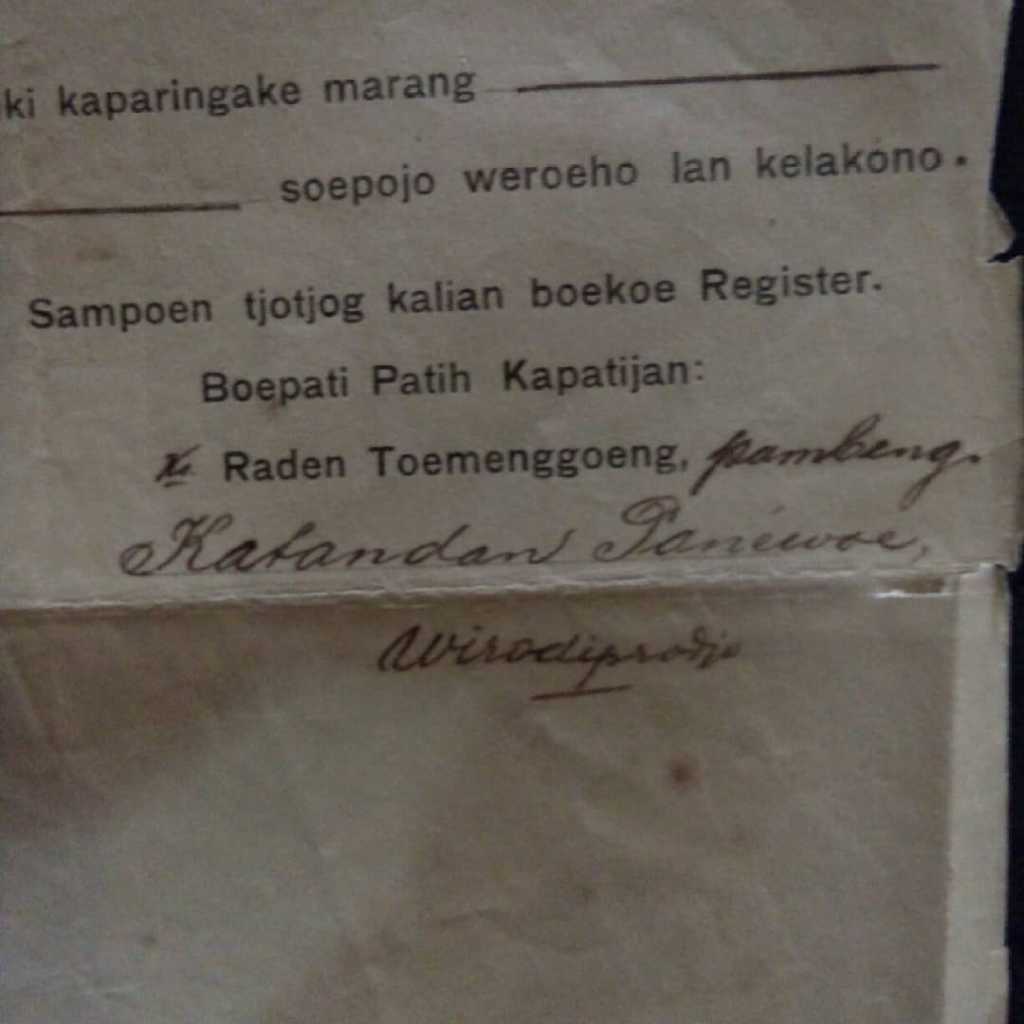 ki kaparingake marang
soepojo weroeho lan kelakono.
Sampoen tjotjog kalian boekoe Register.
Boepati Patih Kapatijan:
Raden Toemenggoeng, pambeng.
Katandan Paniwoe,
Wirodiprodjo